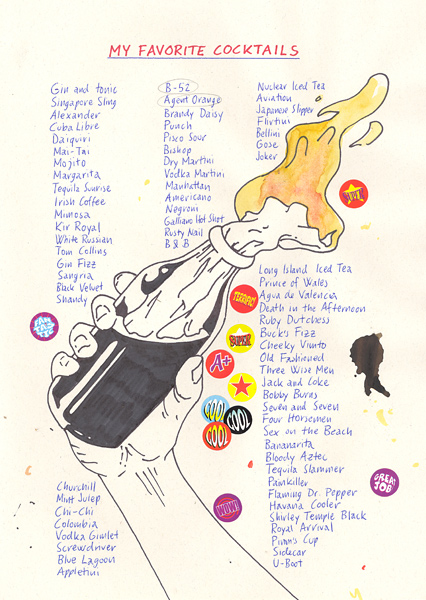 MY FAVORITE COCKTAILS
Gin and tonic
Singapore Sling
Alexander
Cuba Libre
Daiquiri
Mai-Tai
Mojito
Margarita
Tequila Sunrise
Irish Coffee
Mimosa
Kir Royal
White Russian
Tom Collins
Gin Fizz
Sangria
Black Velvet
Shandy
B-52
Agent Orange
Brandy Daisy
Punch
Pisco Sour
Bishop
Dry Martini
Vodka Martini
Manhattan
Americano
Negroni
Galliano Hot Shot
Rusty Nail
B & B
Nuclear Iced Tea
Aviation
Japanese Slipper
Flirtini
Bellini
Gose
Joker
Long Island Iced Tea
Prince of Wales
Agua de Valencia
Death in the Afternoon
Ruby Dutchess
Buck's Fizz
Cheeky Vimto
Old Fashioned
Three Wise Men
Jack and Coke
Bobby Burns
Seven and Seven
Four Horsemen
Sex on the Beach
Bananarita
Bloody Aztec
Tequila Slammer
Painkiller
Flaming Dr. Pepper
Havana Cooler
Shirley Temple Black
Royal Arrival
Pimm's Cup
Sidecar
U-Boot
Churchill
Mint Julep
Chi-Chi
Colombia
Vodka Gimlet
Screwdriver
Blue Lagoon
Appletini
FAN
TAS
TIC
TERRIFIC
SUPER
A+
COOL
COOL
COOL
WOW!
GREAT
JOB